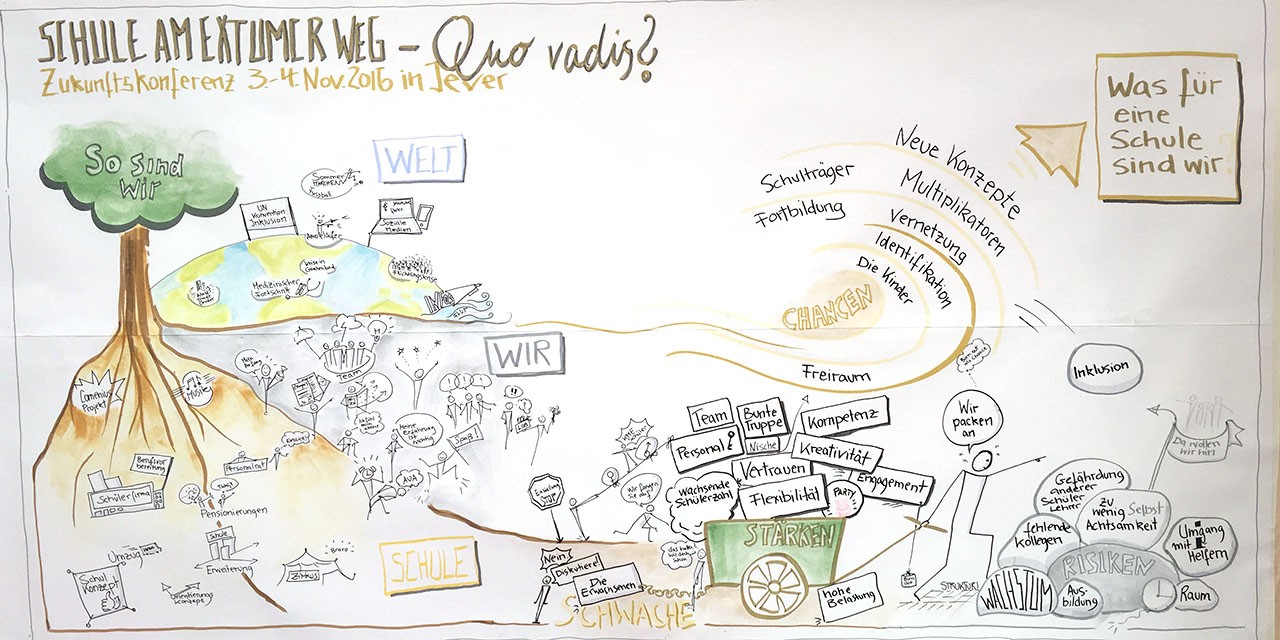 SCHULE AM EXTUMER WEG - Quo vadis?
Zukunftskonferenz 3.-4. Nov. 2016 in Jever
Was für
eine
Schule
sind wir?
So sind
wir
WELT
Sommer
Fussball
UN
Konvention
Inklusion
Soziale
Medien
Medizinischer
Fortschritt
WIR
Team
Meine
Erfahrung
ist
wichtig
Spaß!
AUA
Comenius
Projekt
Musik
Berufsvor
bereitung
Schülerfirma
Personalrat
Pensionierungen
Umzug
Schule
Erweiterung
Schul
Konzept
Orientierungs
Konzept
Zirkus
Bravo
SCHULE
Neue Konzepte
Schulträger
Multiplikatoren
Fortbildung
Vernetzung
Identifikation
Die Kinder
CHANCEN
Freiraum
Inklusion
Wir
packen
an
Da wollen
wir hin!
Team
Bunte
Truppe
Kompetenz
Personal
Nische
Kreativität
Vertrauen
Engagement
wachsende
Schülerzahl
Flexibilität
PARTY
STÄRKEN
hohe
Belastung
STOP
Nein
Diskutiere!
Die
Erwachsenen
SCHWÄCHE
STRUKTUR
Gefährdung
anderer
Schüler
Lehrer
zu
wenig
Selbst
Achtsamkeit
fehlende
Kollegen
Umgang
mit
Helfern
RISIKEN
WACHSTUM
Aus-
bildung
Raum